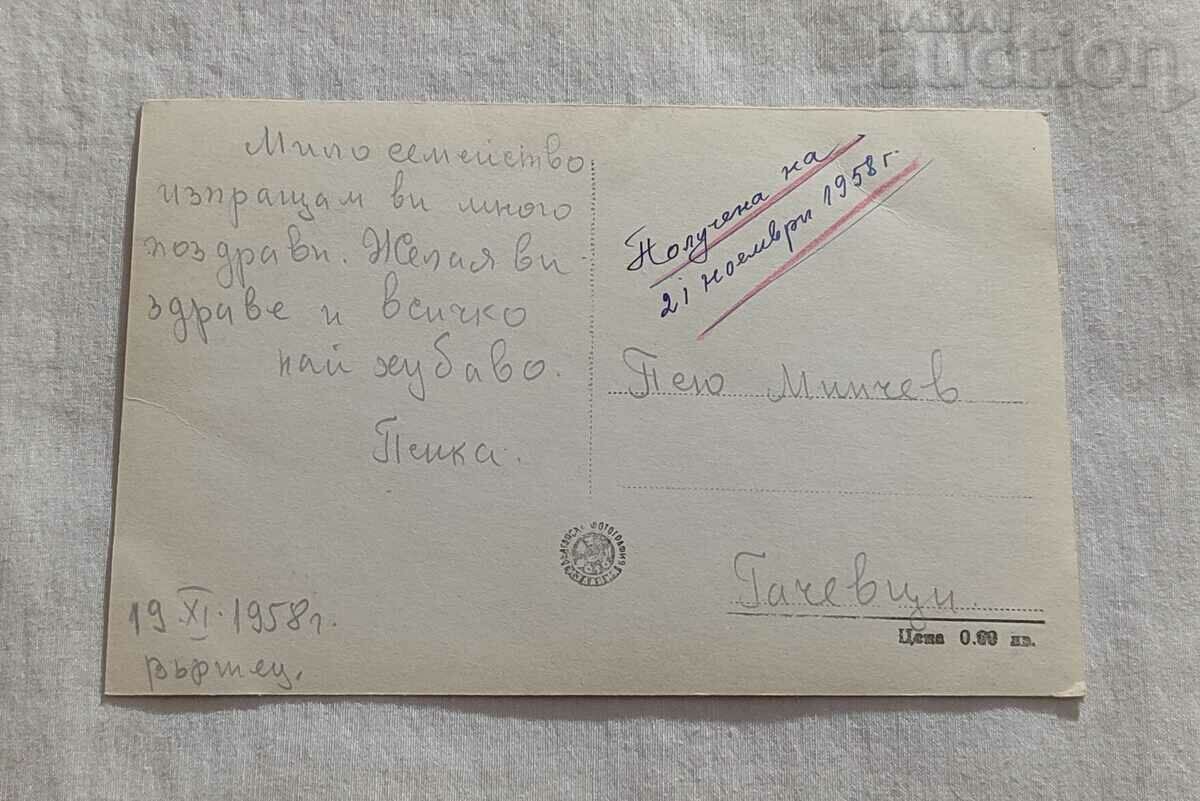 BALKAN
auction
Мило семейство
изпращам ви много
поздрави. Желая ви
здраве и всичко
най хубаво.
Пенка.
19.XI.1958г.
Вършец.
Получена на
21 ноември 1958 г.
Пею Минчев
Гачевци.
Цена 0.60 лв.